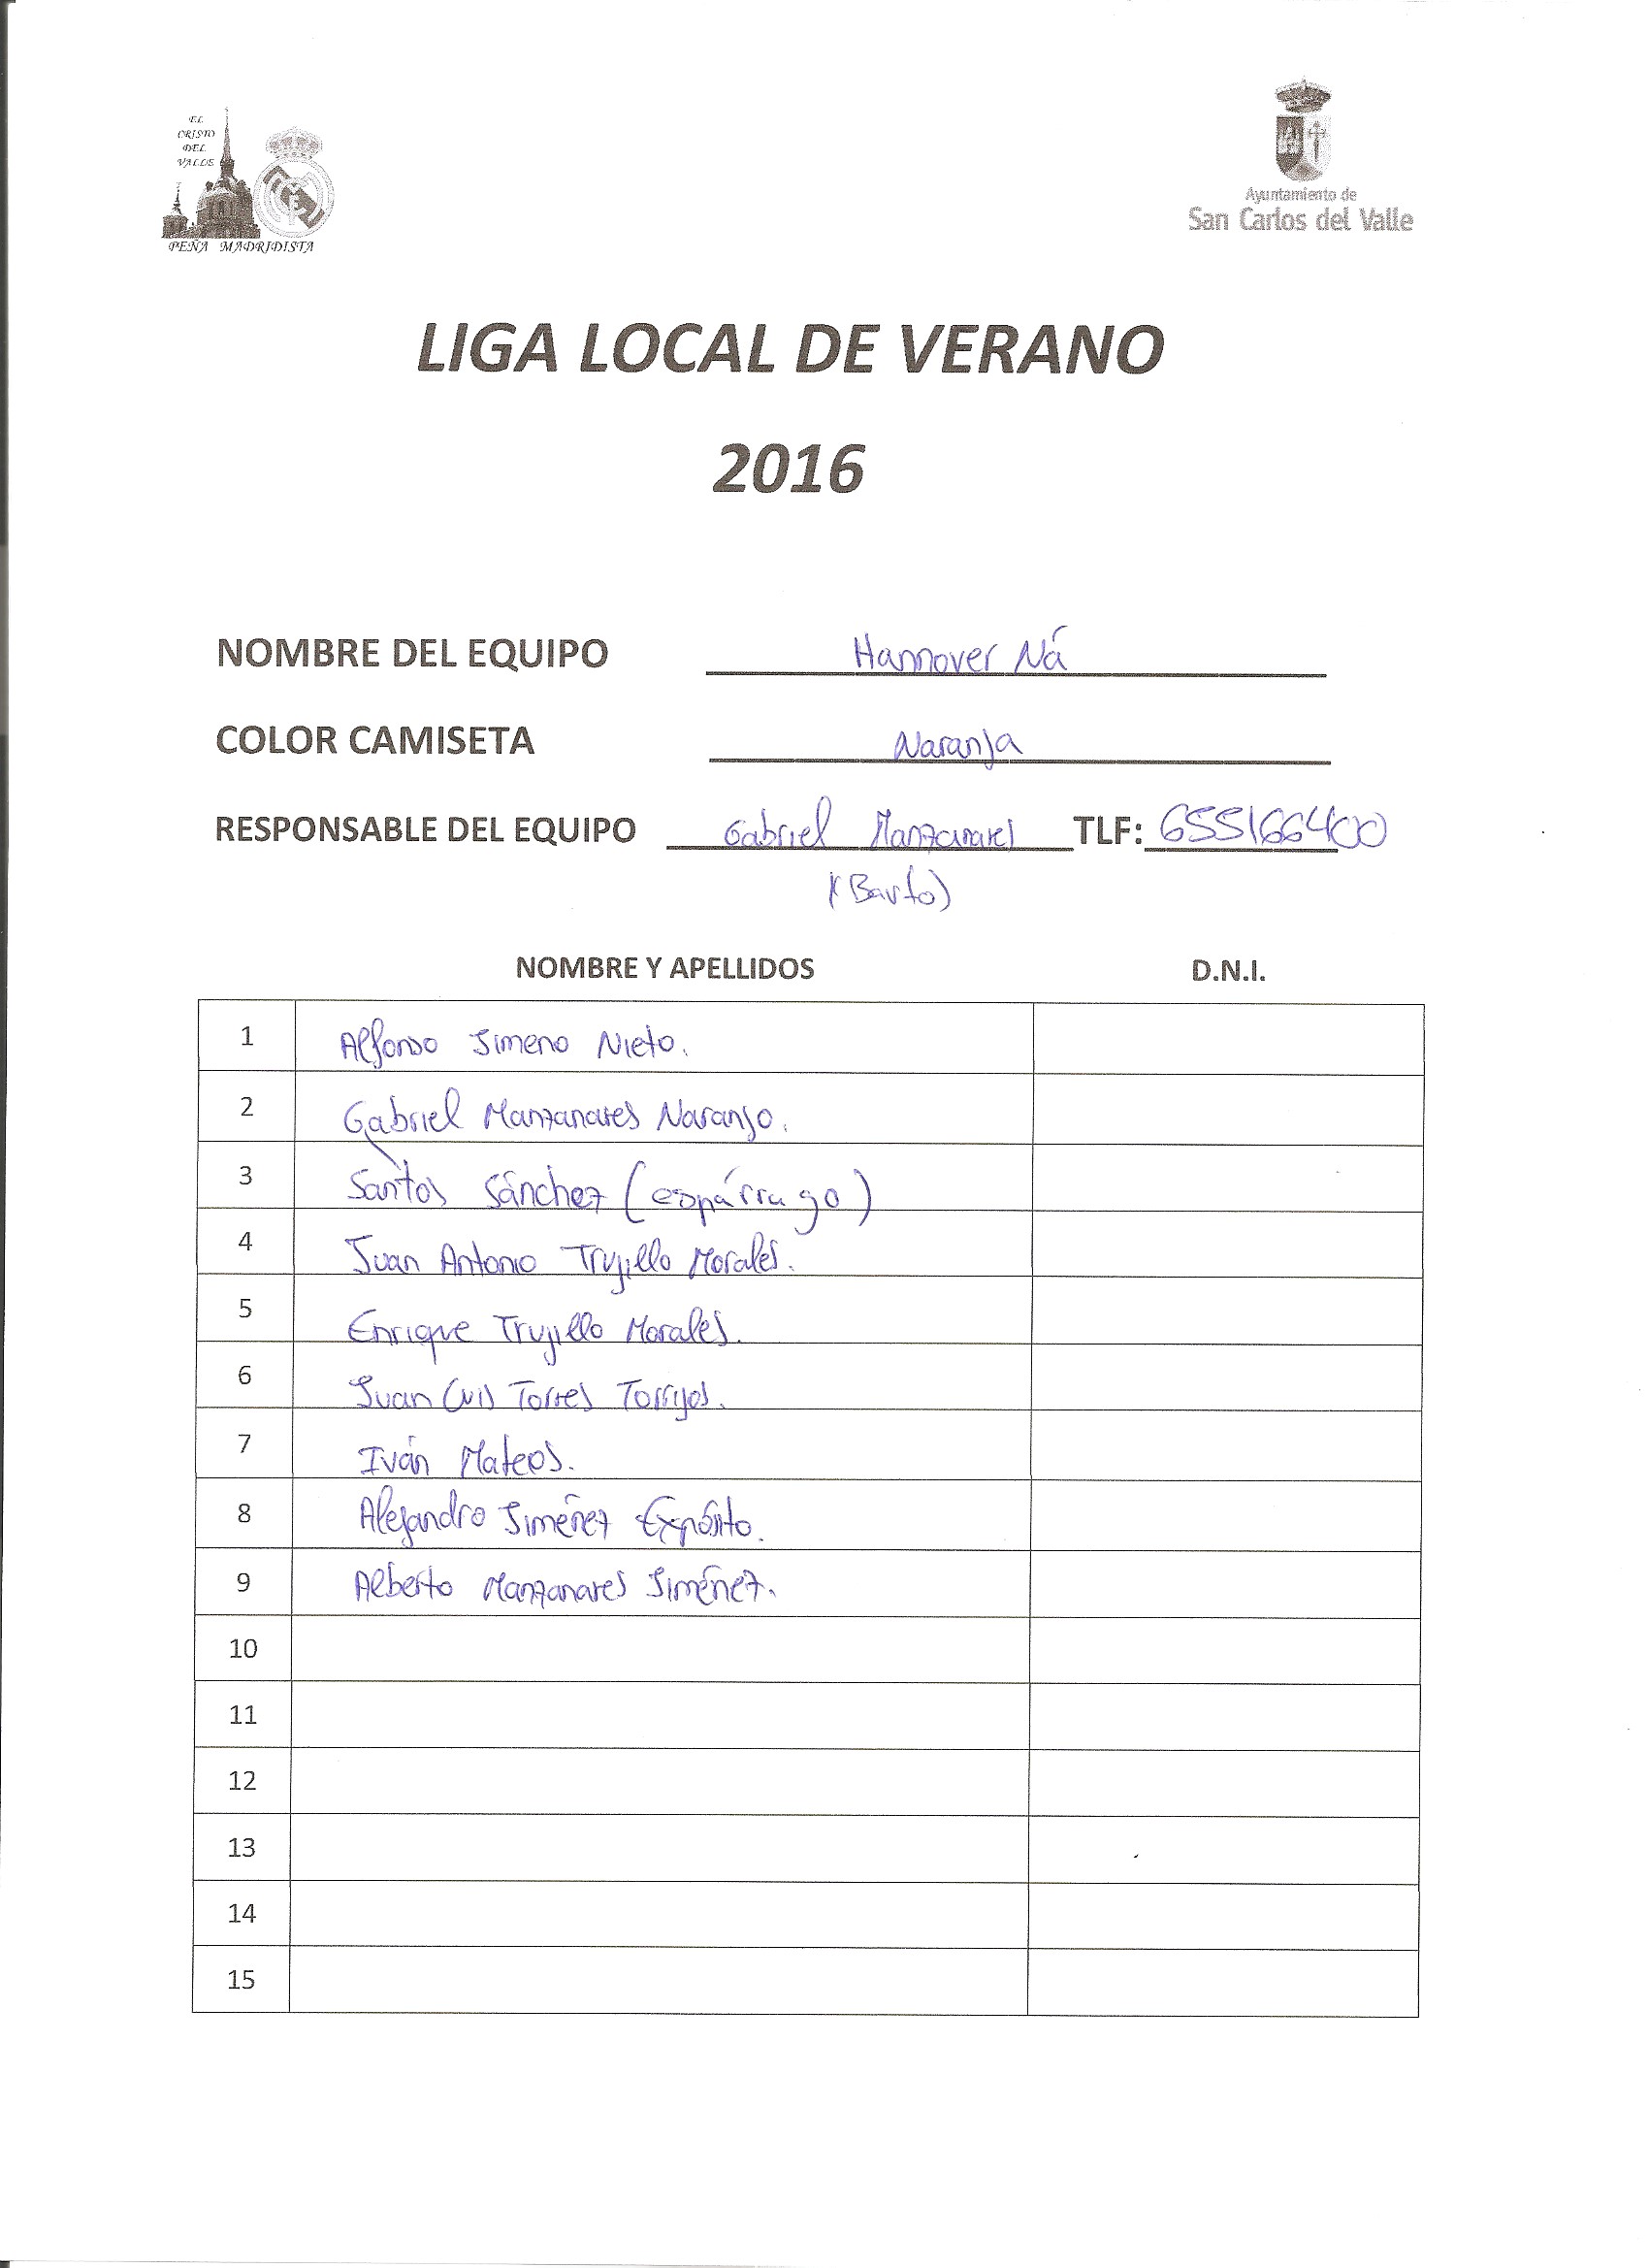 EL
CRISTO
DEL
VALLE
PEÑA MADRIDISTA
Ayuntamiento de
San Carlos del Valle
LIGA LOCAL DE VERANO
2016
NOMBRE DEL EQUIPO Hannover Ná
COLOR CAMISETA Naranja
RESPONSABLE DEL EQUIPO Gabriel Manzanares TLF: 655166400
(Barto)
NOMBRE Y APELLIDOS D.N.I.
1 Alfonso Jimeno Nieto.
2 Gabriel Manzanares Naranjo.
3 Santos Sánchez (espárrago)
4 Juan Antonio Trujillo Morales.
5 Enrique Trujillo Morales.
6 Juan Luis Torres Torrijos.
7 Iván Mateos.
8 Alejandro Jiménez Expósito.
9 Alberto Manzanares Jiménez.
10
11
12
13
14
15